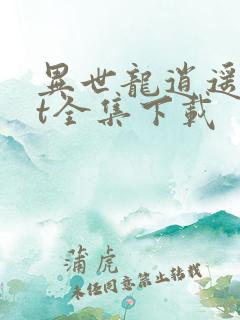 異世龍逍遥
t全集下載
蒲虎
未经同意禁止转载